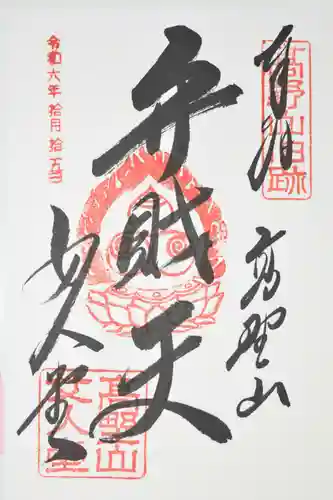 奉拝
髙野山旧跡
高野山
弁財天
女人堂
髙野山
女人堂
令和六年拾月拾五日